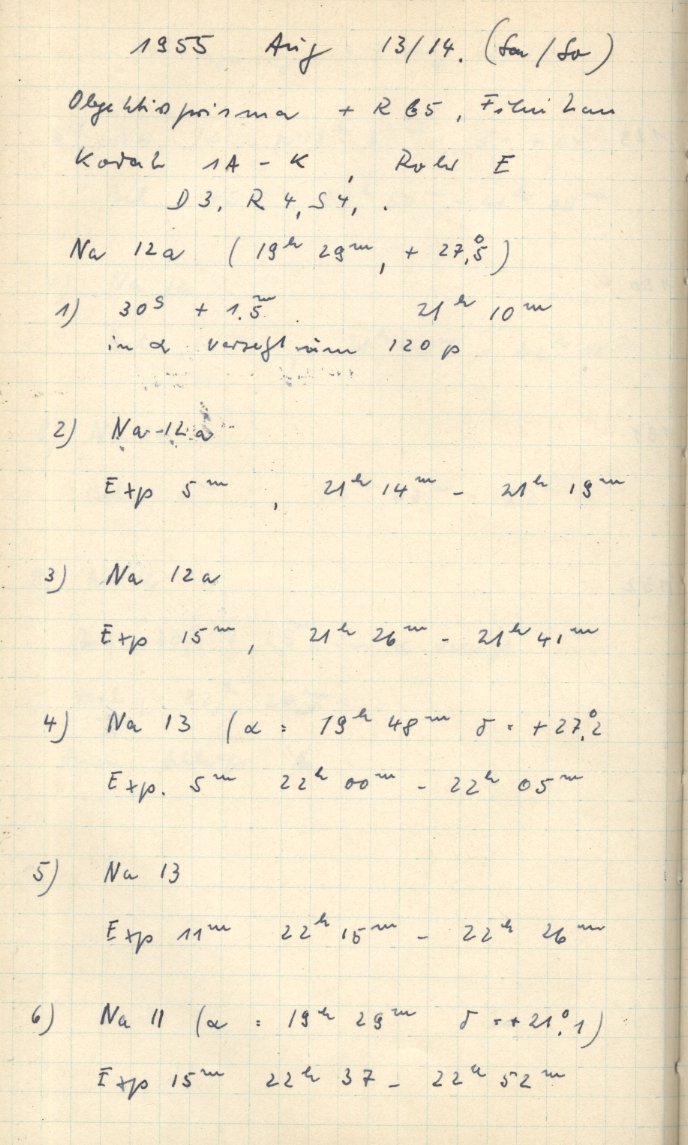 1955 Aug 13/14. (Sa/So)
Objektivprisma + R G5, Film
Kodak 1A-K, Rohr E
D3, R4, S4, .
Na 12a (19h 29m, + 27,°5)
1) 30s + 1.5m 21h 10m
in α versetzt um 120 p
2) Na 12a
Exp 5m, 21h 14m - 21h 19m
3) Na 12a
Exp 15m, 21h 26m - 21h 41m
4) Na 13 (α = 19h 48m δ = +27,°2
Exp. 5m 22h 00m - 22h 05m
5) Na 13
Exp 11m 22h 15m - 22h 26m
6) Na 11 (α = 19h 29m δ = +21,°1)
Exp 15m 22h 37 - 22h 52m